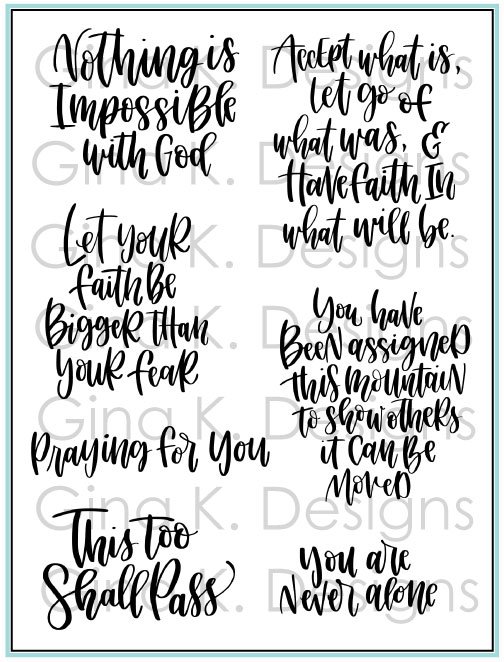 Nothing is
Impossible
with God
Let your
faith Be
Bigger than
your fear
Praying for you
This too
Shall Pass
Accept what is,
let go of
what was, &
Have faith In
what will be.
You have
Been assigned
this mountain
to show others
it can Be
Moved
You are
Never alone
Gina K. Designs
Gina K. Designs
Gina K. Designs
Gina K. Designs
Gina K. Designs
Gina K. Designs
Gina K. Designs